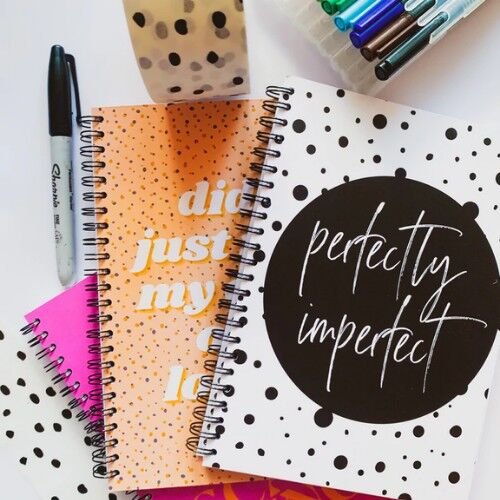 Sharpie
did
just
my
perfectly
imperfect